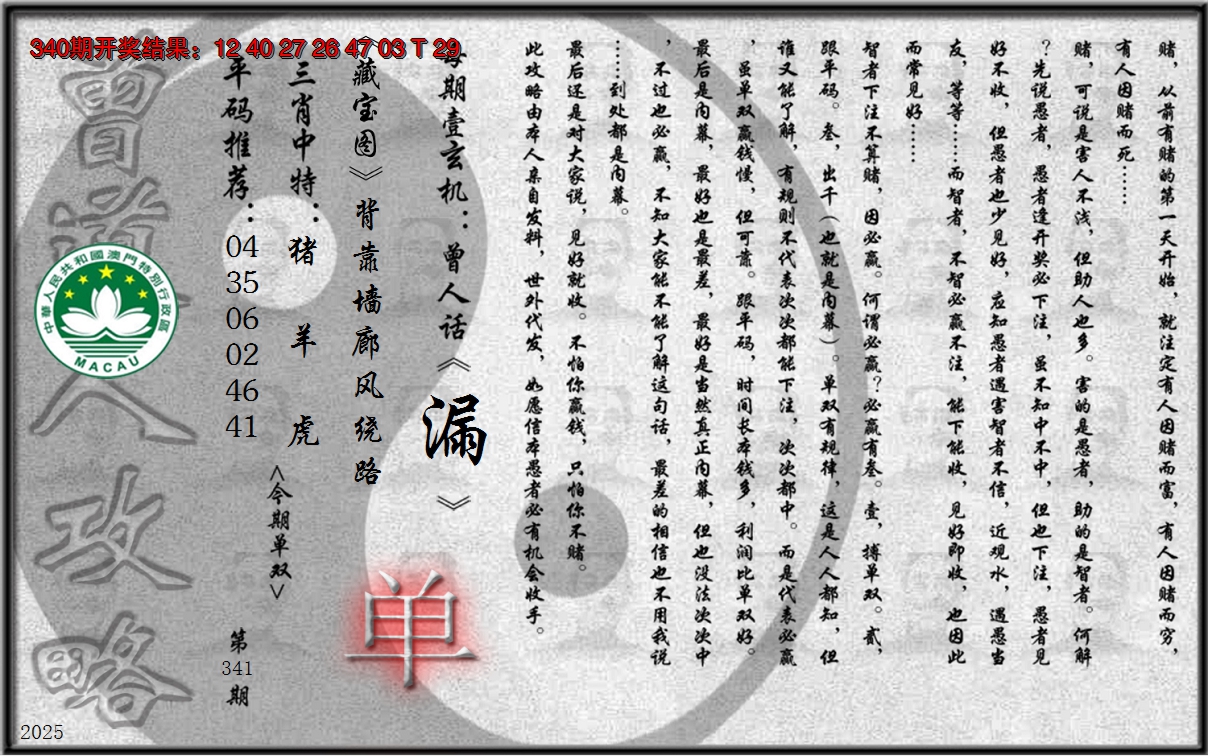 340期开奖结果：12 40 27 26 47 03 T 29
赌，从前有赌的第一天开始，就注定有人因赌而富，有人因赌而穷，
有人因赌而死……
赌，可说是害人不浅，但助人也多。害的是愚者，助的是智者。何解
？先说愚者，愚者逢开奖必下注，虽不知中不中，但也下注，愚者见
好不收，但愚者也少见好，应知愚者遇害智者不信，近观水，遇愚当
友，等等……而智者，不智必赢不注，能下能收，见好即收，也因此
而常见好……
智者下注不算赌，因必赢。何谓必赢？必赢有叁。壹，搏单双。贰，
跟平码。叁，出千（也就是内幕）。单双有规律，这是人人都知，但
谁又能了解，有规则不代表次次都能下注，次次都中。而是代表必赢
，虽单双赢钱慢，但可靠。跟平码，时间长本钱多，利润比单双好。
最后是内幕，最好也是最差，最好是当然真正内幕，但也没法次次中
，不过也必赢，不知大家能不能了解这句话，最差的相信也不用我说
……到处都是内幕。
最后还是对大家说，见好就收。不怕你赢钱，只怕你不赌。
此攻略由本人亲自发料，世外代发，如愿信本愚者必有机会收手。
每期壹玄机：曾人话《漏》
《藏宝图》背靠墙廊风绕路
单
三肖中特：猪 羊 虎
<今期单双>
平码推荐：04 35 06 02 46 41
第341期
曾道人攻略
中華人民共和國澳門特別行政區
MACAU
2025